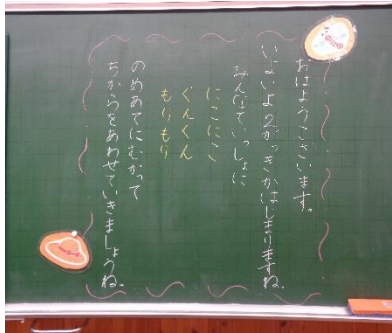 おはようございます。
いよいよ2がっきがはじまりますね。
みんなでいっしょに
にこにこ
ぐんぐん
もりもり
のめあてにむかって
ちからをあわせていきましょうね。